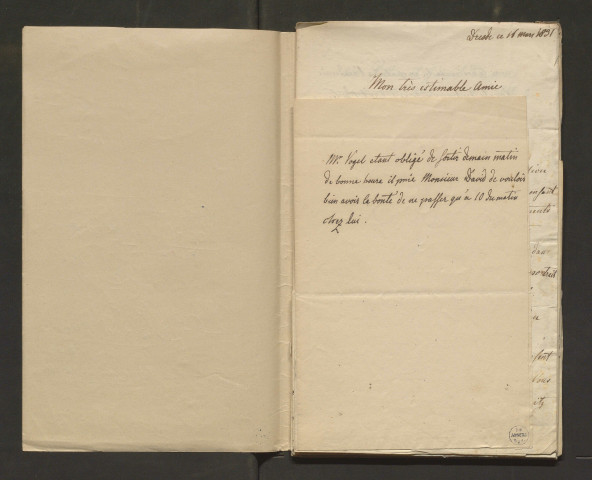 Dresde ce 16 mars 1831
Mon très estimable Amie
Mr. Vogel etant obligé de sortir demain matin
de bonne heure il prie Monsieur David de vouloir
bien avoir la bonté de ne passer qu'à 10 du matin
chez lui.